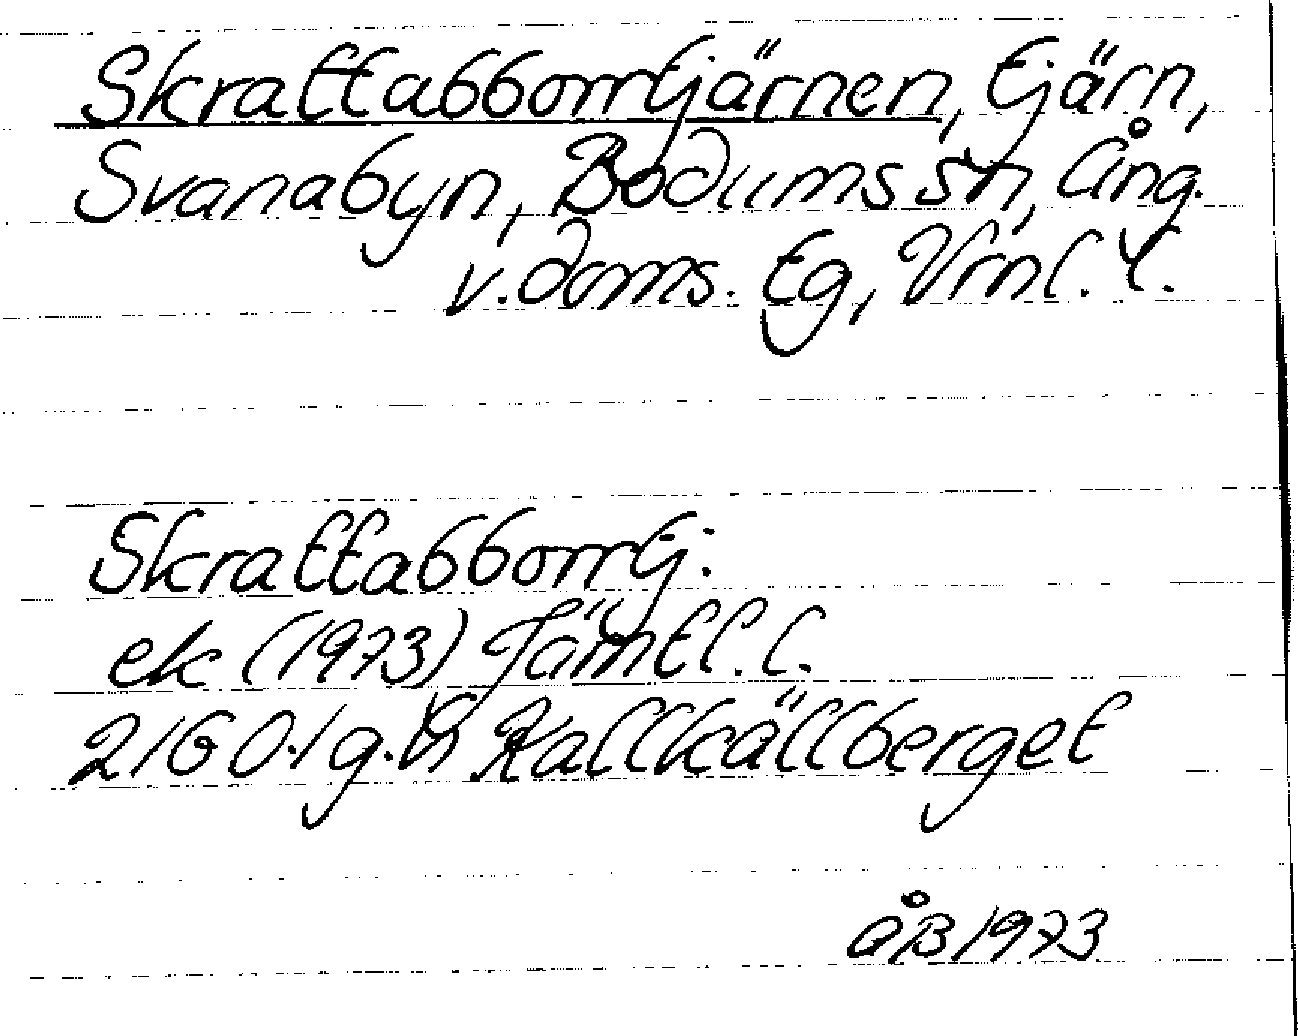 Skrattabborrtjärnen, tjärn,
Svanabyn, Bodums sn, Ång.
v. doms. tg, Vrnl. l.
Skrattabborrtj:
ek (1973) Jämtl. l.
21G 0-1 g.h Kallkällberget
ÅB 1973